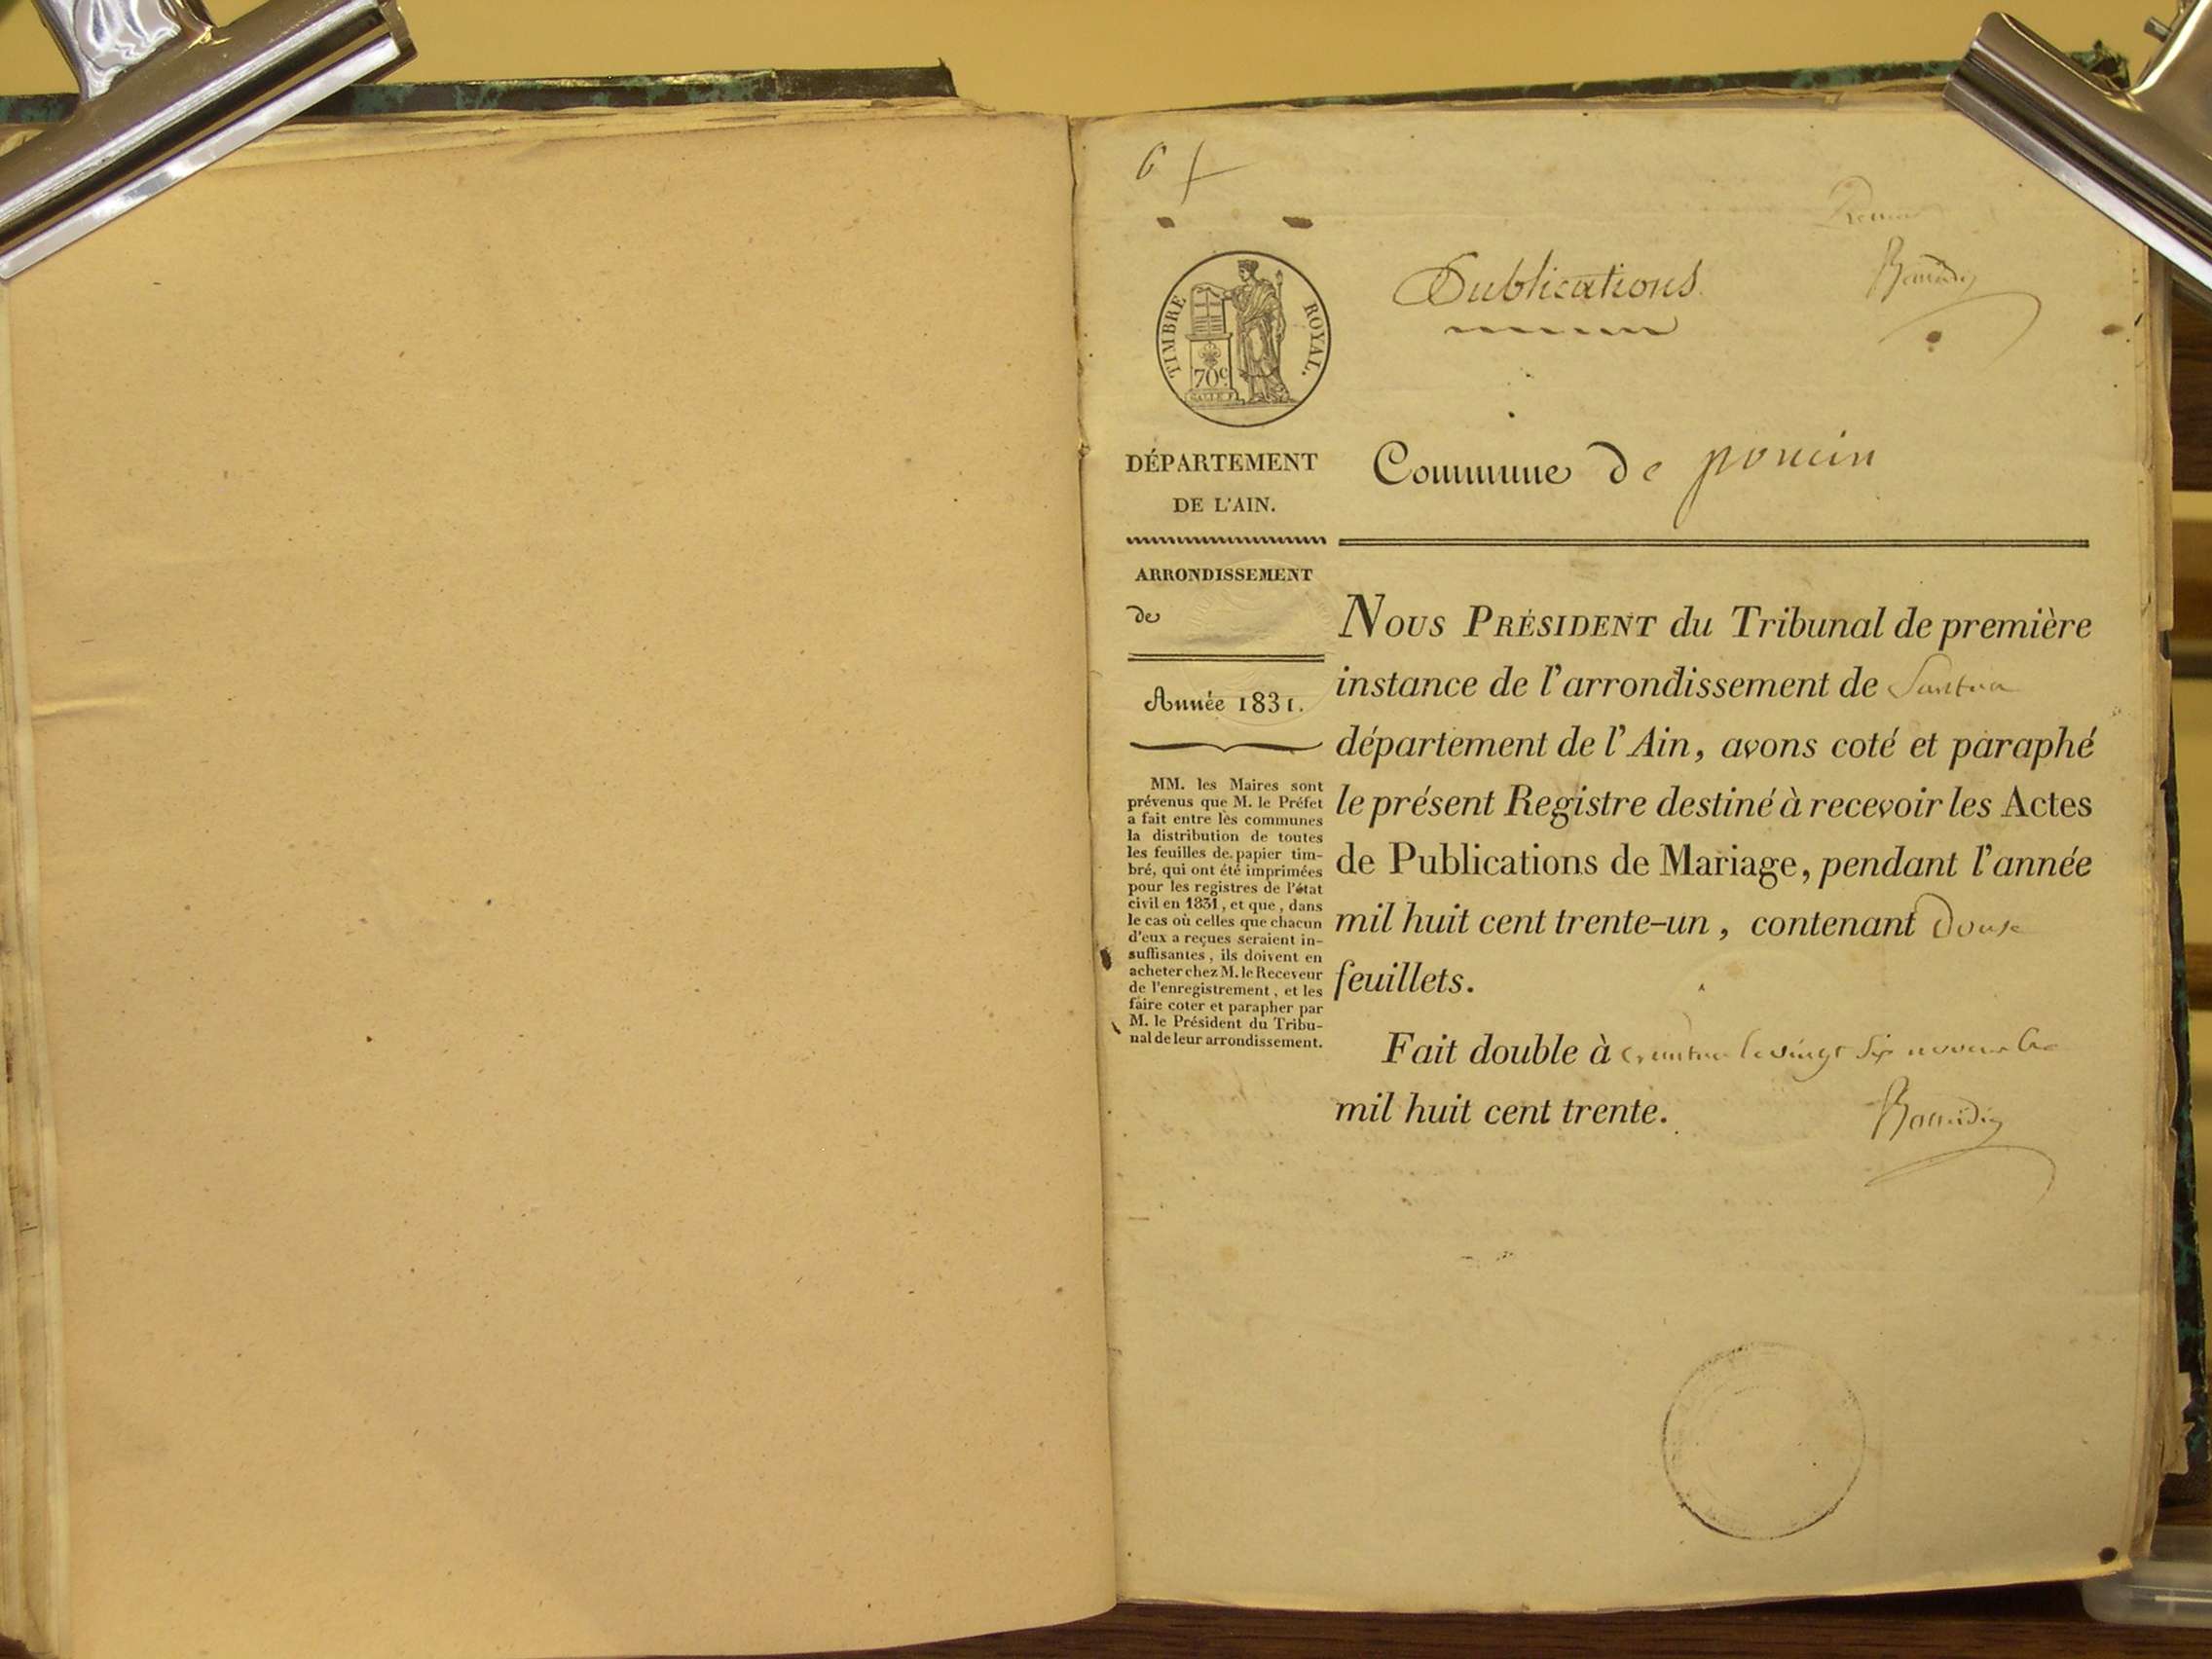 6
Publications
TIMBRE ROYAL.
70c.
DÉPARTEMENT
DE L'AIN.
Commune de poncin
ARRONDISSEMENT
de
Année 1831.
MM. les Maires sont
prévenus que M. le Préfet
a fait entre les communes
la distribution de toutes
les feuilles de papier tim-
bré, qui ont été imprimées
pour les registres de l'état
civil en 1831, et que, dans
le cas où celles que chacun
d'eux a reçues seraient in-
suffisantes, ils doivent en
acheter chez M. le Receveur
de l'enregistrement, et les
faire coter et parapher par
M. le Président du Tribu-
nal de leur arrondissement.
NOUS PRÉSIDENT du Tribunal de première
instance de l'arrondissement de
département de l'Ain, avons coté et paraphé
le présent Registre destiné à recevoir les Actes
de Publications de Mariage, pendant l'année
mil huit cent trente-un, contenant Douse
feuillets.
Fait double à le vingt six novembre
mil huit cent trente.